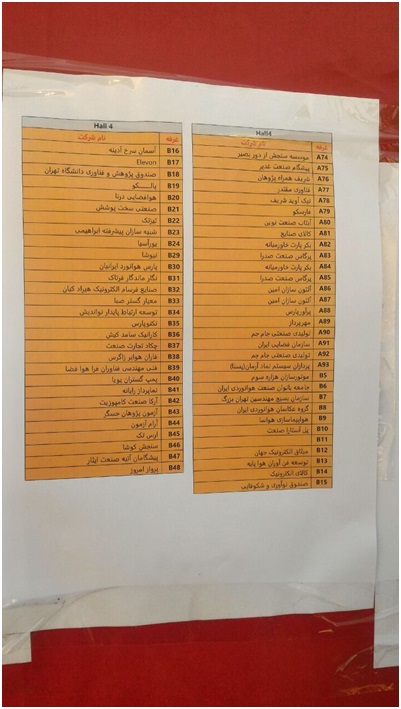 Hall4
غرفه نام شرکت
A74 موسسه سنجش از دور بصیر
A75 پیشگام صنعت غدیر
A76 شریف همراه پژوهان
A77 فناوری مقتدر
A78 نیک آوید شریف
A79 فارسکو
A80 آیتاب صنعت نوین
A81 کالای صنایع
A82 بکر پارت خاورمیانه
A83 پرگاس صنعت صدرا
A84 بکر پارت خاورمیانه
A85 پرگاس صنعت صدرا
A86 آلتون سازان امین
A87 آلتون سازان امین
A88 برآورپارس
A89 مهرپرداز
A90 تولیدی صنعتی جام جم
A91 سازمان فضایی ایران
A92 تولیدی صنعتی جام جم
A93 پردازان سیستم نماد آرمان(پسنا)
B5 موتورسازان هزاره سوم
B6 جامعه بانوان صنعت هوانوردی ایران
B7 سازمان بسیج مهندسین تهران بزرگ
B8 گروه عکاسان هوانوردی ایران
B9 هواپیماسازی هواسا
B10 پل آستارا صنعت
B11
B12 میثاق الکترونیک جهان
B13 توسعه فن آوران هوا پایه
B14 کالای الکترونیک
B15 صندوق نوآوری و شکوفایی
Hall 4
غرفه نام شرکت
B16 آسمان سرخ آدینه
B17 Elevon
B18 صندوق پژوهش و فناوری دانشگاه تهران
B19
B20 هوافضایی درنا
B21 صنعتی سخت پوشش
B22 تیزتک
B23 شبیه سازان پیشرفته ابراهیمی
B24 یورآسیا
B29 نیوشا
B30 پارس هوانورد ایرانیان
B31 نگار ماندگار فرتاک
B32 صنایع فرسام الکترونیک هیراد کیان
B33 معیار گستر صبا
B34 توسعه ارتباط پایدار نواندیش
B35 تکنوپارس
B36 کارانیک سامد کیش
B37 چکاد تجارت صنعت
B38 فاران هوابر زاگرس
B39 فنی مهندسی فناوران فرا هوا فضا
B40 پمپ گستران پویا
B41 نماپرداز رایانه
B42 آرکا صنعت کامپوزیت
B43 آزمون پژوهان حسگر
B44 آرام آزمون
B45 ارس تک
B46 سنجش کوشا
B47 پیشگامان آتیه صنعت ایثار
B48 پرواز امروز